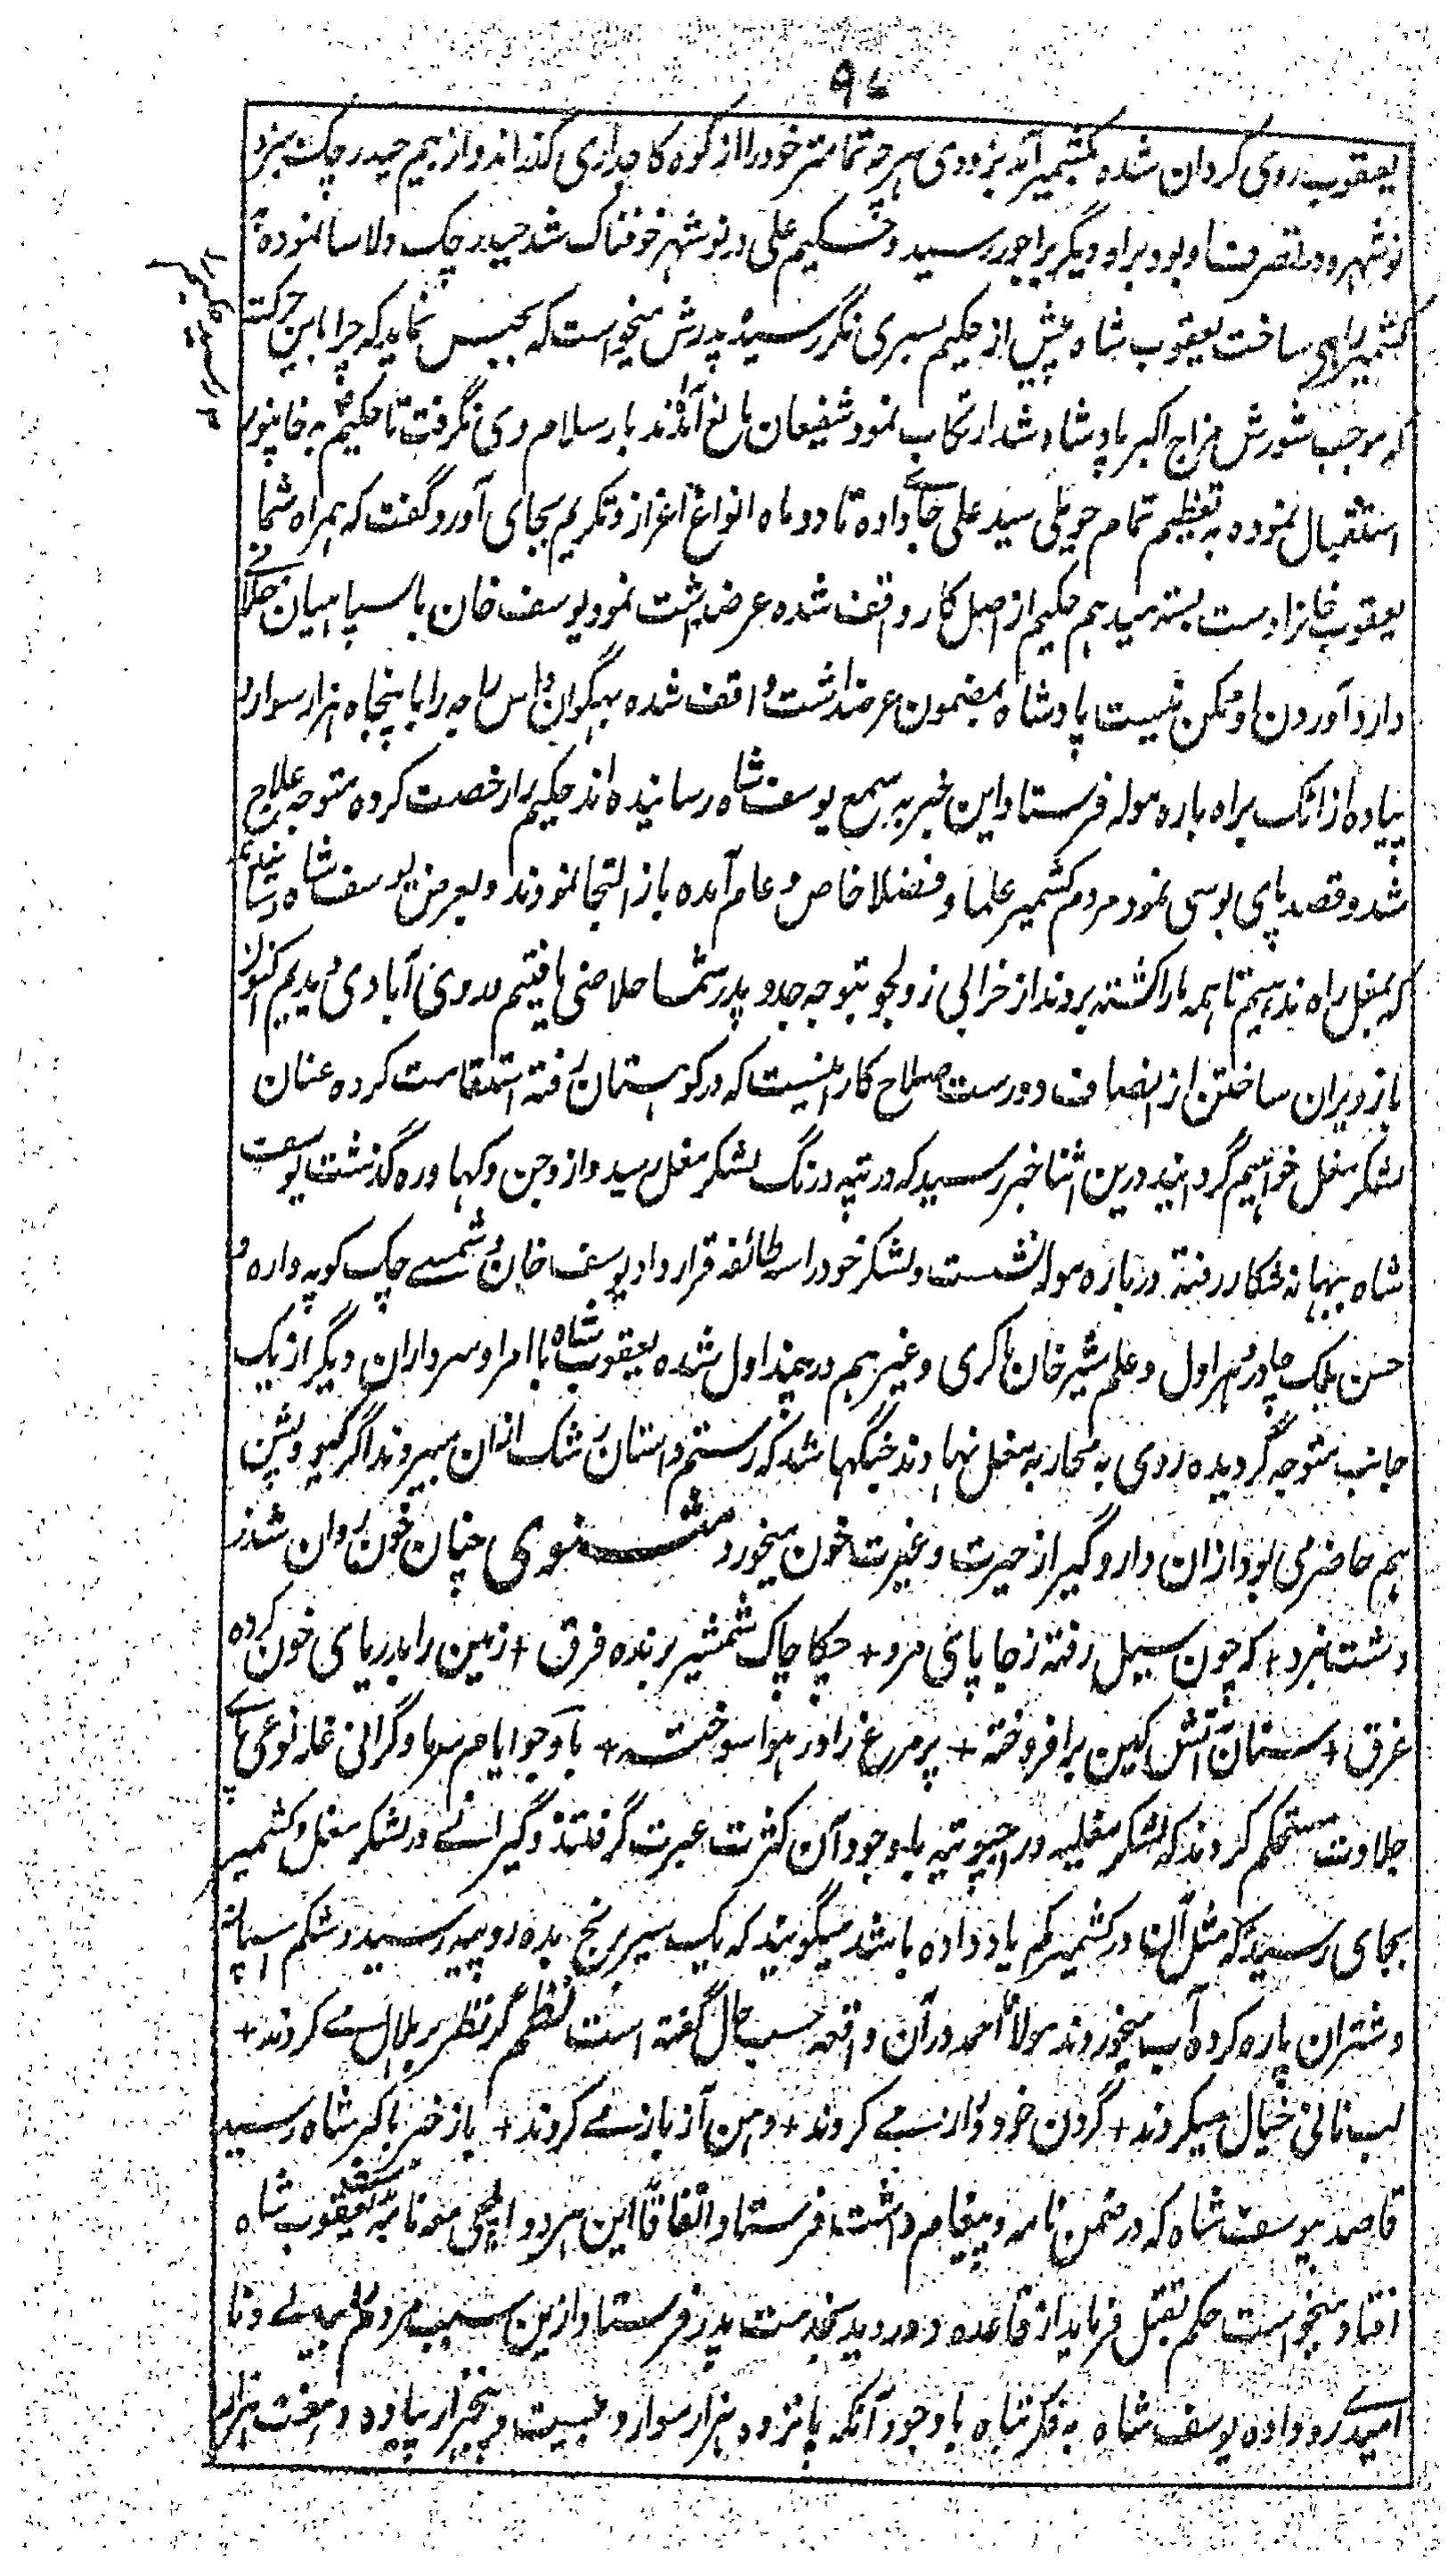 ۹۷
یعقوب روی گردان شده بکشمیر آمد بزودی هرچه تمامتر خود را از کوه کاجداری گذراند و از بیم حیدر چک نیز در
نوشهره در تصرف او بود براه دیگر براجور رسید و حکیم علی در نوشهر خوفناک شد حیدر چک دلاسا نموده
کشمیر راهی ساخت یعقوب شاه پیش از حکیم بسری نگر رسید پدرش میخواست که بحبس نماید که چرا باین حرکت
که موجب شورش مزاج اکبر پادشاه شد ارتکاب نمود شفیعان مانع آمدند بار سلام وی نگرفت تا حکیم به خانپور
استقبال نموده به تعظیم تمام حویلی سید علی جای داده تا دو ماه انواع اعزاز و تکریم بجای آورد گفت که همراه شما
یعقوب خانرا دست بسته میدهم حکیم از اصل کار واقف شده عرضداشت نمود یوسف خان با سپاهیان
دارد آوردن او ممکن نیست پادشاه بمضمون عرضداشت واقف شده بهگوان داس راجه را با پنجاه هزار سوار و
پیاده از اتک براه باره موله فرستاد این خبر به سمع یوسف شاه رسانیده اند حکیم را رخصت کرده متوجه علاج
شد و قصد پای بوسی نمود مردم کشمیر علما و فضلا خاص و عام آمده باز التجا نمودند و بعرض یوسف شاه رسانیدند
که بمغل راه ندهیم تا همه مارا کشته بروند از خرابی زولجو بتوجه جد و پدر شما خلاصی یافتیم و روی آبادی دیدیم اکنون
باز ویران ساختن از انصاف دورست صلاح کار اینست که در کوهستان رفته استقامت کرده عنان
لشکر مغل خواهیم گردانید درین اثنا خبر رسید که در تپه درنگ لشکر مغل رسید و از وجن و کهاوره گذشت یوسف
شاه ببهانه شکار رفته در باره موله نشست و لشکر خود را سه طائفه قرار داد یوسف خان و شمسی چک کوپه واره و
حسن ملک چادر هراول و علم شیر خان ماکری و غیرهم در هنداول شده یعقوب شاه با امرا و سرداران دیگر از یک
جانب متوجه گردیده روی به محاربه مغل نهادند جنگها شد که رستم داستان رشک ازان میبردند اگر گیو و پشن
هم حاضر می بود ازان دار و گیر از حیرت و غیرت خون میخورد مثنوی چنان خون روان شد ز
دشت نبرد + که چون سیل رفته ز جا پای مرد + چکاچاک شمشیر برنده فرق + زمین را بدریای خون کرده
غرق + سنان آتش کین برافروخته + پر مرغ را در هوا سوخته + با وجود ایام سرما و گرانی غله نوعی پای
جلادت مستحکم کردند که لشکر مغلیه در باوجود آن کثرت عبرت گرفتند و گیرانی در لشکر مغل و کشمیر
بجای رسید که مثل آن در کشمیر کم یاد داده باشد میگویند که یک سیر برنج بده روپیه رسید و شکم اسپان
و شتران پاره کرده آب میخوردند مولانا احمد در آن واقعه حسب حال گفته است نظم گر نظر بر هلال می کردند +
لب نانی خیال میکردند + گردن خود دراز می کردند + دهن آز باز می کردند + باز خبر باکبر شاه رسید
قاصد یوسف شاه که در ضمن نامه و پیغام داشت فرستاد اتفاقاً این هر دو ایلچی معه نامه بدست یعقوب شاه
افتاد میخواست حکم بقتل فرماید از قاعده دور دید بخدمت پدر فرستاد ازین سبب مردم را بیدلی و نا
امیدی رو داده یوسف شاه به فکر تباه با وجود آنکه پانزده هزار سوار و بیست و پنجهزار پیاده و هفت هزار